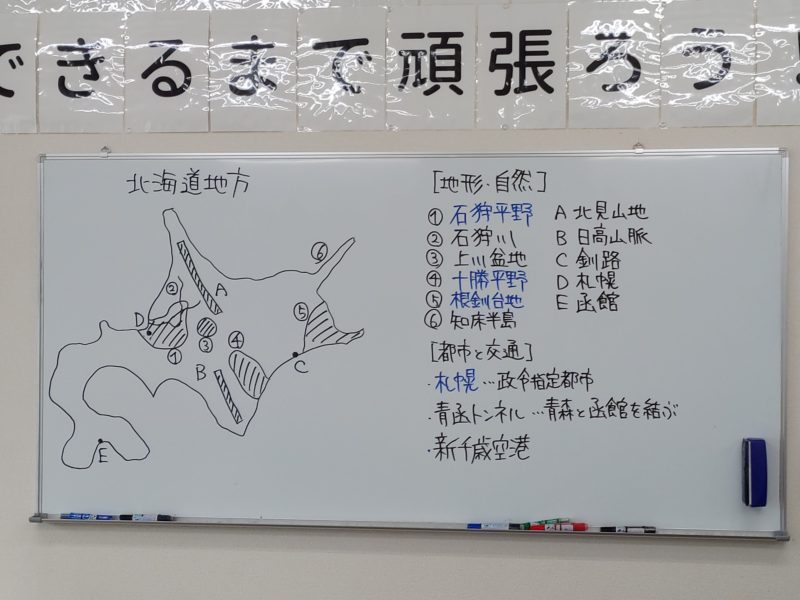 できるまで頑張ろう！
北海道地方
[地形・自然]
① 石狩平野 A 北見山地
② 石狩川 B 日高山脈
③ 上川盆地 C 釧路
④ 十勝平野 D 札幌
⑤ 根釧台地 E 函館
⑥ 知床半島
[都市と交通]
・札幌…政令指定都市
・青函トンネル…青森と函館を結ぶ
・新千歳空港
⑥
A
②
D
①
③
⑤
④
B
C
E